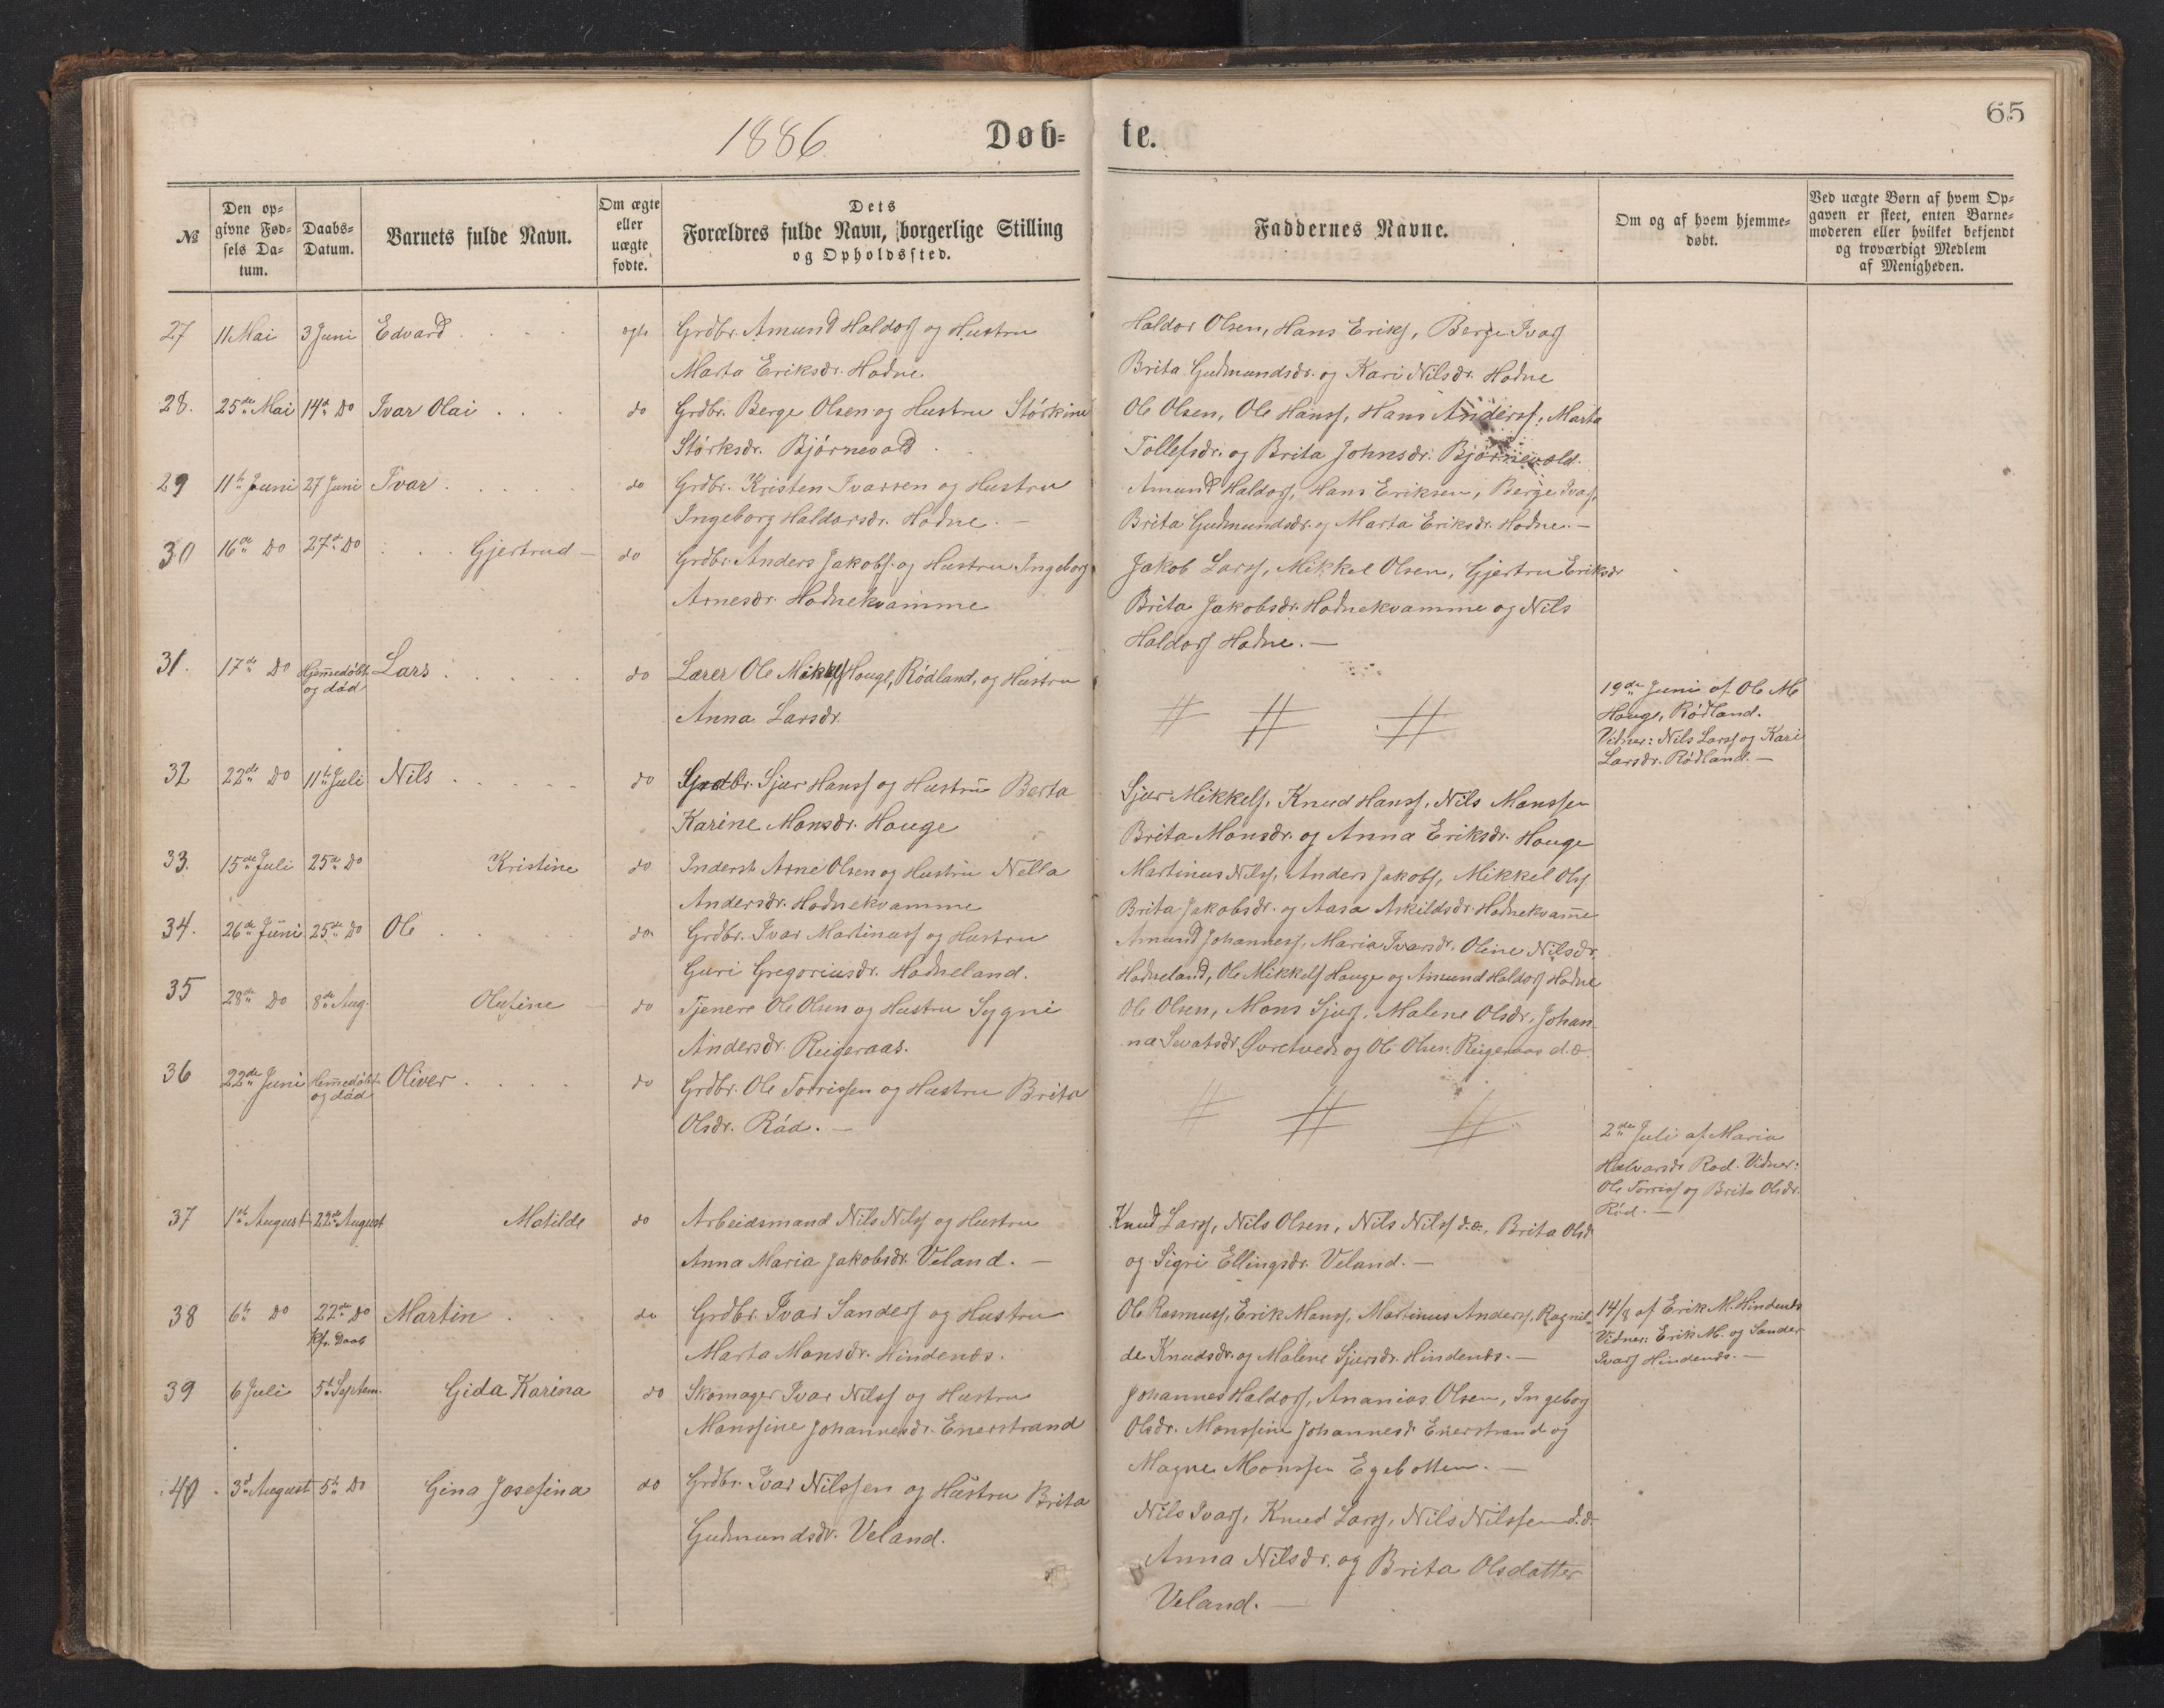 65
1886
Døb-
te.
№
Den op-
givne Fød-
sels Da-
tum.
Daabs-
Datum.
Barnets fulde Navn.
Om ægte
eller
uægte
fødte.
Dets
Forældres fulde Navn, borgerlige Stilling
og Opholdssted.
Faddernes Navne.
Om og af hvem hjemme-
døbt.
Ved uægte Børn af hvem Op-
gaven er skeet, enten Barne-
moderen eller hvilket bekjendt
og troværdigt Medlem
af Menigheden.
27 11 Mai 3 Juni Edvard ægte Grdbr. Amund Haldorss og Hustru
Marta Eriksdr. Hodne
Haldor Olsen, Hans Erikss, Berge Ivarss
Brita Gudmundsdr. og Kari Nilsdr. Hodne
28. 25de Mai 14de do Ivar Olai do Grdbr. Berge Olsen og Hustru Störkine
Störksdr. Bjørnevold
Ole Olsen, Ole Hanss, Hans Anderss, Marta
Tollefsdr. og Brita Johnsdr. Bjørnevold.
29 11te Juni 27 Juni Ivar do Grdbr. Kristen Ivarsen og Hustru
Ingeborg Haldorsdr. Hodne. —
Amund Haldorss, Hans Eriksen, Berge Ivarss,
Brita Gudmundsdr. og Marta Eriksdr. Hodne. —
30 16de do 27de do Gjertrud — do Grdbr. Anders Jakobss. og Hustru Ingeborg
Arnesdr. Hodnekvamme
Jakob Larss, Mikkel Olsen, Gjertru Eriksdr
Brita Jakobsdr. Hodnekvamme og Nils
Haldorss Hodne. —
31. 17de do Hjemedöbt
og död Lars do Lærer Ole Mikkelss Houge, Rödland, og Hustru
Anna Larsdr.
# # #
19de Juni af Ole M
Houge, Rödland.
Vidner: Nils Larss og Kari
Larsdr. Rödland. —
32 22de do 11te Juli Nils do Grdbr. Sjur Hanss og Hustru Berta
Karine Monsdr. Houge
Sjur Mikkelss, Knud Hanss, Nils Monssen
Brita Monsdr. og Anna Eriksdr. Houge
33. 15de Juli 25de do Kristine do Inderst Arne Olsen og Hustru Nella
Andersdr. Hodnekvamme
Martinus Nilss, Anders Jakobss, Mikkel Olss
Brita Jakobsdr. og Aasa Askildsdr. Hodnekvame
34. 26de Juni 25de do Ole do Grdbr. Ivar Martinuss og Hustru
Guri Gregoriusdr. Hodneland.
Amund Johanness, Maria Ivarsdr. Oline Nilsdr.
Hodneland, Ole Mikkelss Houge og Amund Haldorss Hodne
35 28de do 8de Aug. Olufine — do Tjenere Ole Olsen og Hustru Sygni
Andersdr. Reigeraas.
Ole Olsen, Mons Sjurss, Malene Olsdr., Johan-
na Sivatsdr. Øvretvedt og Ole Olsen Reigeraas d.æ.
36 22de Juni Hjemedöbt
og död Oliver do Grdbr. Ole Torrissen og Hustru Brita
Olsdr. Röd. —
# # #
2den Juli af Maria
Halvorsdr Rod. Vidner:
Ole Torriss og Brita Olsdr.
Röd. —
37 1ste August 22de August Matilde do Arbeidsmand Nils Nilss og Hustru
Anna Maria Jakobsdr. Veland. —
Knud Larss, Nils Olsen, Nils Nilss d.æ. Brita Olsdr
og Sigri Ellingsdr. Veland. —
38 6te do 22de do
kfr. Daab Martin do Grdbr. Ivar Sanderss og Hustru
Marta Monsdr. Hindenes.
Ole Rasmuss, Erik Monss, Martinus Anderss, Ragnil-
de Knudsdr. og Malene Sjursdr. Hindenes. —
14/8 af Erik M. Hindenes
Vidner: Erik M. og Sander
Ivarss Hindenes. —
39 6 Juli 5te Septem. Gida Karina do Skomager Ivar Nilss og Hustru
Monssine Johannesdr. Enerstrand
Johannes Haldorss, Ananias Olsen, Ingebog
Olsdr. Monssine Johannesdr Enerstrand og
Magne Monssen Egebotten. —
40 3d August 5te do Gina Josefina do Grdbr. Ivar Nilssen og Hustru Brita
Gudmundsdr. Veland.
Nils Ivarss, Knud Larss, Nils Nilssen d.æ.
Anna Nilsdr. og Brita Olsdatter
Veland. —